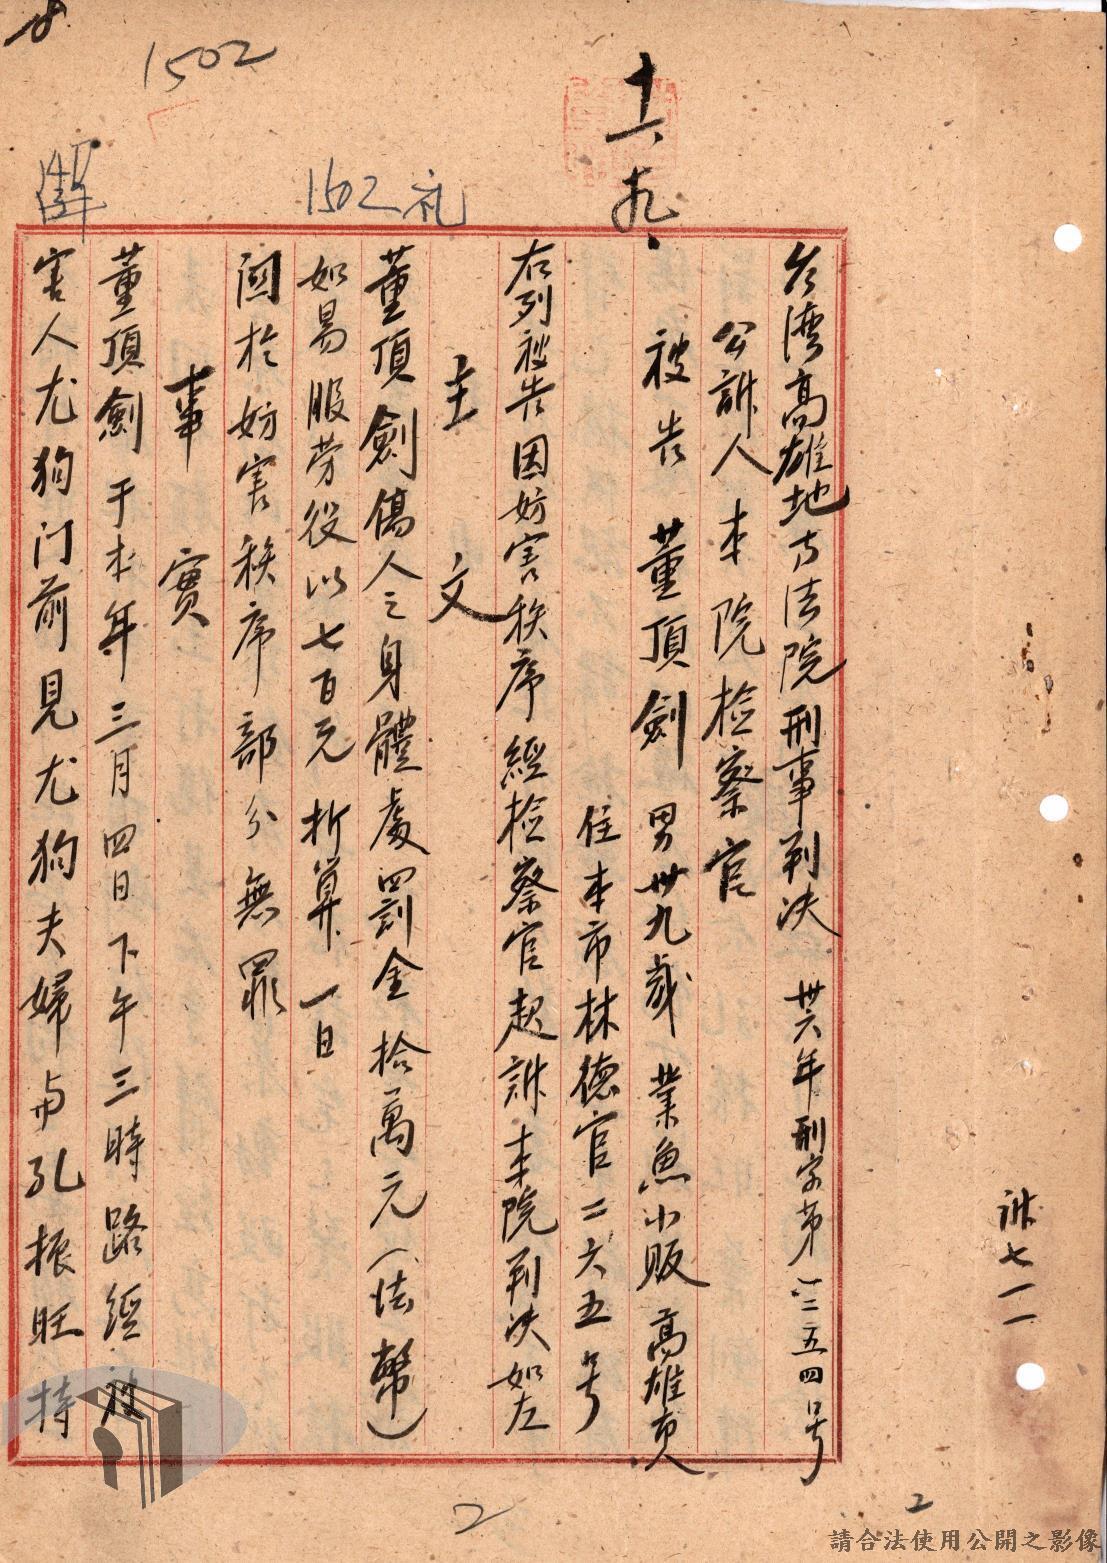 1502
1502 礼
十六、九、
訴七一一
台湾高雄地方法院刑事判决 卅六年刑字第一三五四号
公訴人本院检察官
被告 董頂劍 男卅九歲 業魚小販 高雄市人
住本市林德官二六五号
右列被告因妨害秩序經检察官起訴本院判决如左
主文
董頂劍傷人之身體處罰金拾萬元(法幣)
如易服劳役以七百元折算一日
関於妨害秩序部分無罪
事實
董頂劍于本年三月四日下午三時路經被
害人尤狗门前見尤狗夫婦与孔振旺持
2
2
請合法使用公開之影像